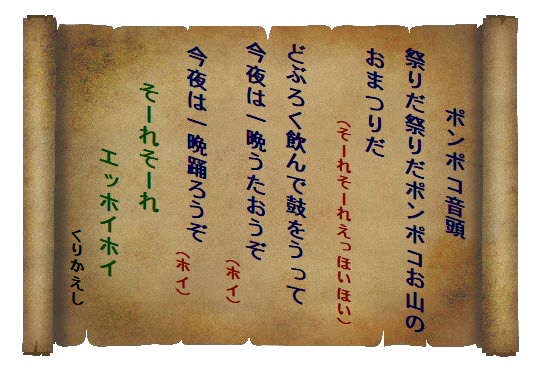 ポンポコ音頭
祭りだ祭りだポンポコお山の
おまつりだ
(そーれそーれえっほいほい)
どぶろく飲んで鼓をうって
今夜は一晩うたおうぞ
(ホイ)
今夜は一晩踊ろうぞ
(ホイ)
そーれそーれ
エッホイホイ
くりかえし